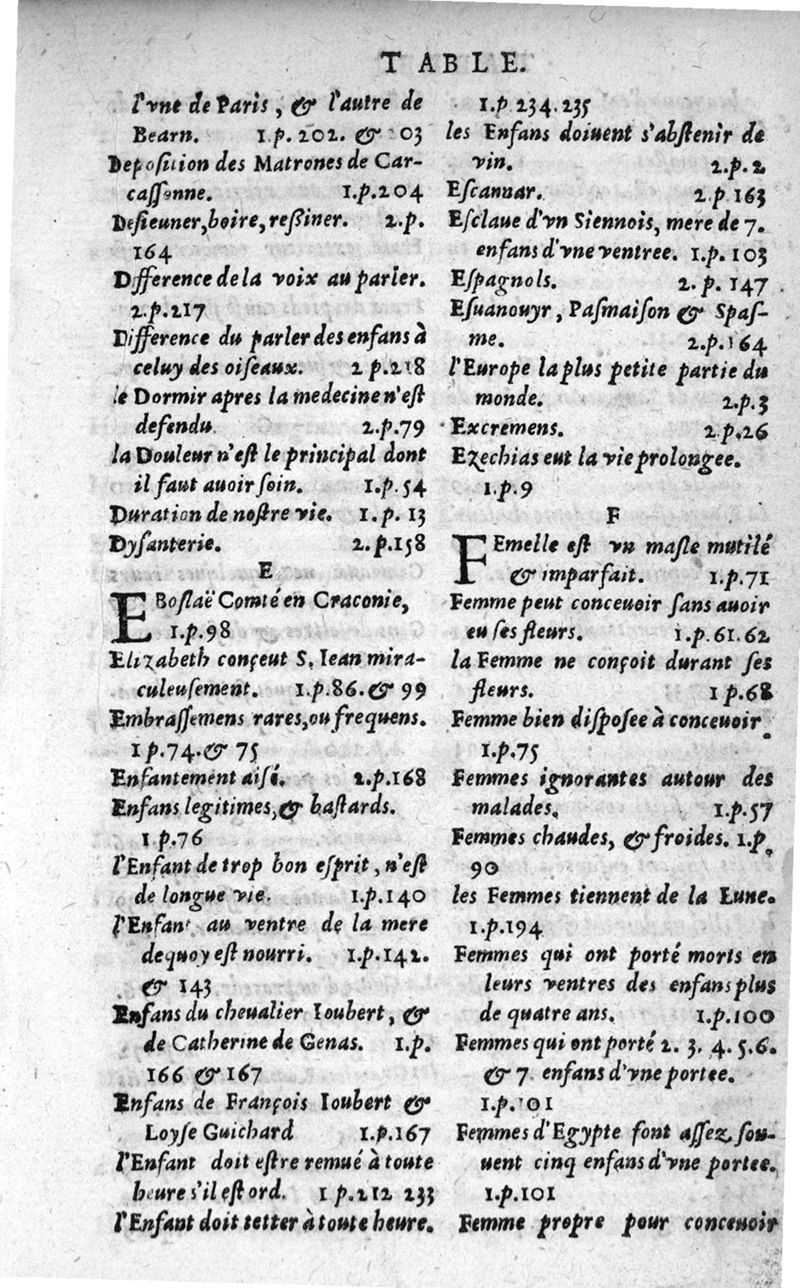 TABLE.
l'vne de Paris, & l'autre de
Bearn. 1.p.202. & 203
Deposition des Matrones de Car-
cassonne. 1.p.204
Desieuner, boire, reßiner. 2.p.
164
Difference de la voix au parler.
2.p.217
Difference du parler des enfans à
celuy des oiseaux. 2 p.218
le Dormir apres la medecine n'est
defendu. 2.p.79
la Douleur n'est le principal dont
il faut auoir soin. 1.p.54
Duration de nostre vie. 1.p.13
Dysanterie. 2.p.158
E
EBoslaë Comté en Craconie,
1.p.98
Elizabeth conçeut S. Iean mira-
culeusement. 1.p.86.& 99
Embrassemens rares, ou frequens.
1 p.74.& 75
Enfantement aisé. 2.p.168
Enfans legitimes, & bastards.
1 p.76
l'Enfant de trop bon esprit, n'est
de longue vie. 1.p.140
l'Enfant au ventre de la mere
dequoy est nourri. 1.p.142.
& 143
Enfans du cheualier Ioubert, &
de Catherine de Genas. 1.p.
166 & 167
Enfans de François Ioubert &
Loyse Guichard 1.p.167
l'Enfant doit estre remué à toute
heure s'il est ord. 1 p.212 233
l'Enfant doit tetter à toute heure.
1.p 234.235
les Enfans doiuent s'abstenir de
vin. 2.p.2
Escannar. 2.p 163
Esclaue d'vn Siennois, mere de 7.
enfans d'vne ventree. 1.p.103
Espagnols. 2.p.147
Esuanouyr, Pasmaison & Spas-
me. 2.p.164
l'Europe la plus petite partie du
monde. 2.p.3
Excremens. 2 p.26
Ezechias eut la vie prolongee.
1.p.9
F
FEmelle est vn masle mutilé
& imparfait. 1.p.71
Femme peut conceuoir sans auoir
eu ses fleurs. 1.p.61.62
la Femme ne conçoit durant ses
fleurs. 1 p.68
Femme bien disposee à conceuoir.
1.p.75
Femmes ignorantes autour des
malades. 1.p.57
Femmes chaudes, & froides. 1.p.
90
les Femmes tiennent de la Lune.
1.p.194
Femmes qui ont porté morts en
leurs ventres des enfans plus
de quatre ans. 1.p.100
Femmes qui ont porté 2. 3. 4. 5. 6.
& 7 enfans d'vne portee.
1.p.101
Femmes d'Egypte font assez sou-
uent cinq enfans d'vne portee.
1.p.101
Femme propre pour conceuoir